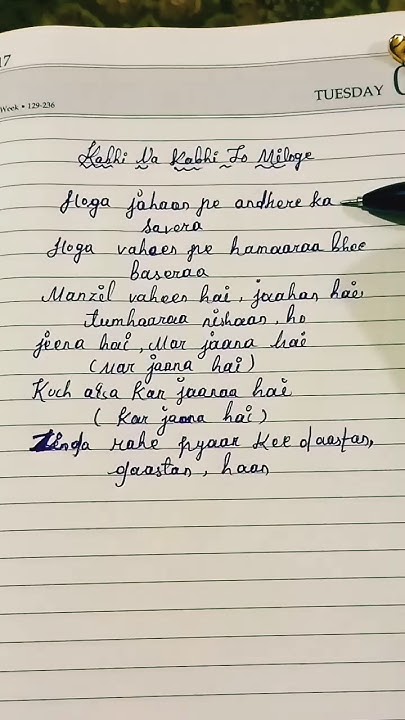 17
Week • 129-236
TUESDAY 0
Kabhi Na Kabhi To Miloge
Hoga jahaan pe andhere ka
savera
Hoga vaheen pe hamaaraa bhee
baseraa
Manzil vaheen hai, jaahan hai
tumhaaraa nishaan, ho
jeena hai, Mar jaana hai
(Mar jaana hai)
Kuch aisa kar jaanaa hai
(kar jaana hai)
Zinda rahe pyaar kee daastan,
daastan, haan